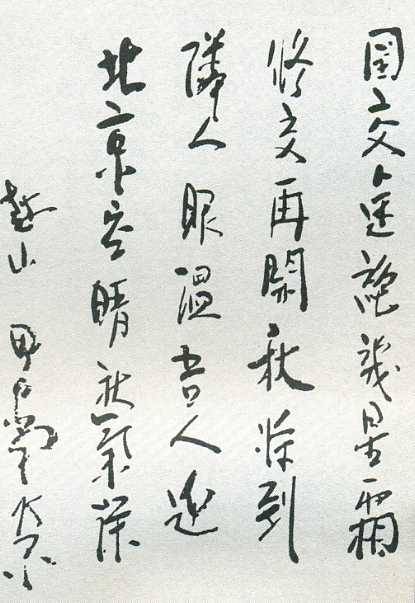 国交途絶幾星霜
修交再開秋将到
隣人眼温吾人迎
北京空晴秋気深
越山